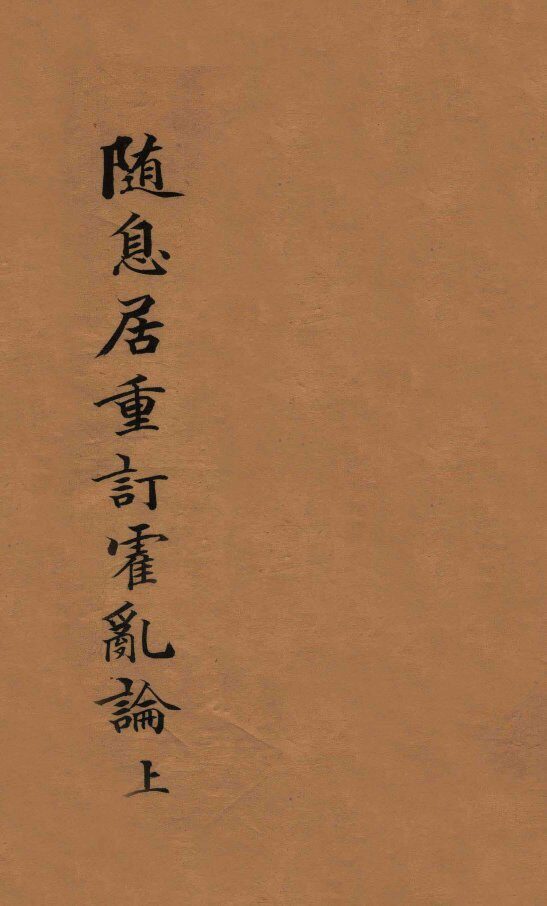 随息居重訂霍亂論上